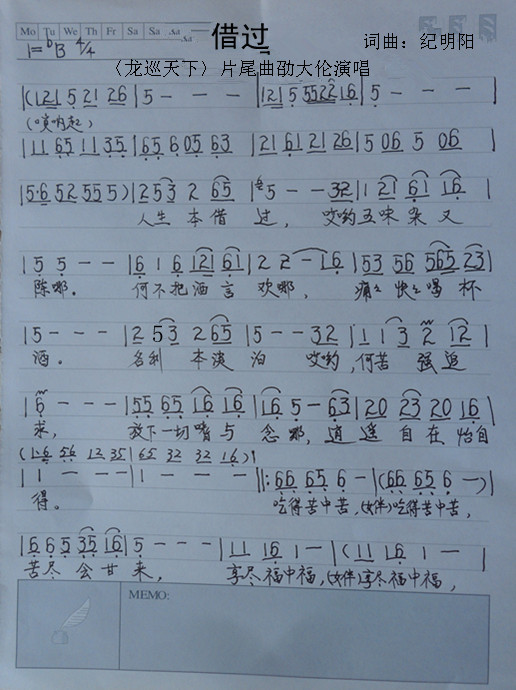 Mo Tu We Th Fr Sa Sa
借过
词曲：纪明阳
1=♭B 4/4
〈龙巡天下〉片尾曲劭大伦演唱
|(121 5 21 26 |5 - - - |121 5 5522 16 |5 - - - |
(唢呐起)
|11 65 11 35 |65 6 05 63 |21 61 21 26 |5 06 5 06 |
|5·6 52 55 5) |2 53 2 65 |5 - - 32 |1 21 61 16 |
人生 本借 过， 哎哟五味杂又
|5 5 - - |6 1 6 121 61 |2 2 - 16 |53 56 565 23 |
陈哪。 何不把酒言 欢哪， 痛痛快快喝杯
|5 - - - |2 53 2 65 |5 - - 32 |1 1 3 2 12 |
酒。 名利 本淡 泊 哎哟，何苦 强追
|6 - - - |55 65 16 16 |16 5 - 63 |20 23 20 16 |
求， 放下一切嗔与 念哪，逍遥自在怡自
(1·6 56 12 35 |65 32 32 16)|
|1 - - - |1 - - - |‖:66 65 6 - |(66 65 6 -)|
得。 吃得苦中苦，(女伴)吃得苦中苦，
|6 6 5 35 16 |5 - - - |11 16 1 - |(11 16 1 - |
苦尽会甘来， 享尽福中福，(女伴)享尽福中福，
MEMO: